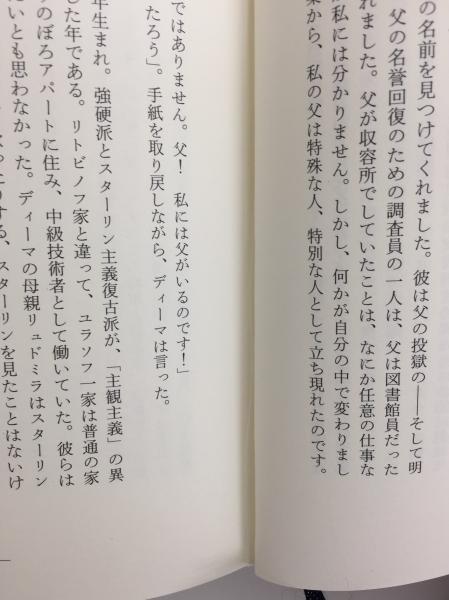 の名前を見つけてくれました。彼は父の投獄の――そして明
父の名誉回復のための調査員の一人は、父は図書館員だった
れました。父が収容所でしていたことは、なにか任意の仕事な
私には分かりません。しかし、何かが自分の中で変わりまし
から、私の父は特殊な人、特別な人として立ち現れたのです。
ではありません。父！　私には父がいるのです！」
たろう」。手紙を取り戻しながら、ディーマは言った。
年生まれ。強硬派とスターリン主義復古派が、「主観主義」の異
した年である。リトビノフ家と違って、ユラソフ一家は普通の家
のぼろアパートに住み、中級技術者として働いていた。彼らは
いとも思わなかった。ディーマの母親リュドミラはスターリン
する、スターリンを見たことはないけ